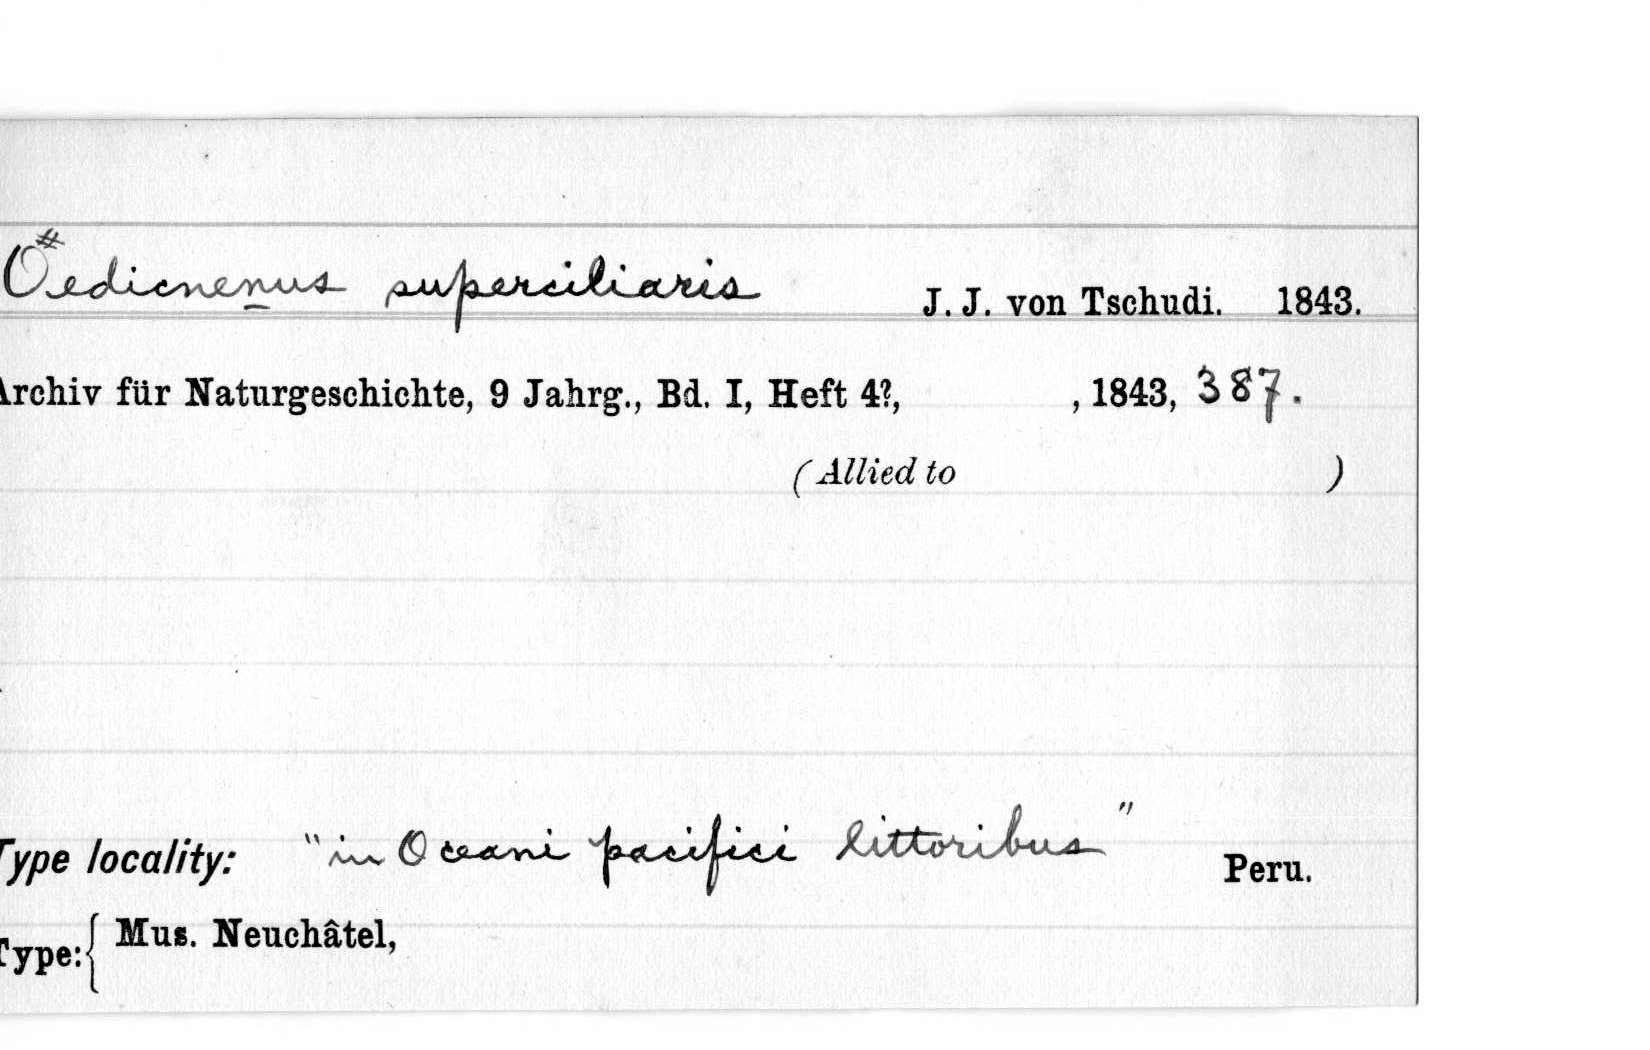 #
Oedicnenus superciliaris J. J. von Tschudi. 1843.
Archiv für Naturgeschichte, 9 Jahrg., Bd. I, Heft 4?, , 1843, 387.
(Allied to )
Type locality: "in Oceani pacifici littoribus" Peru.
Type: { Mus. Neuchâtel,